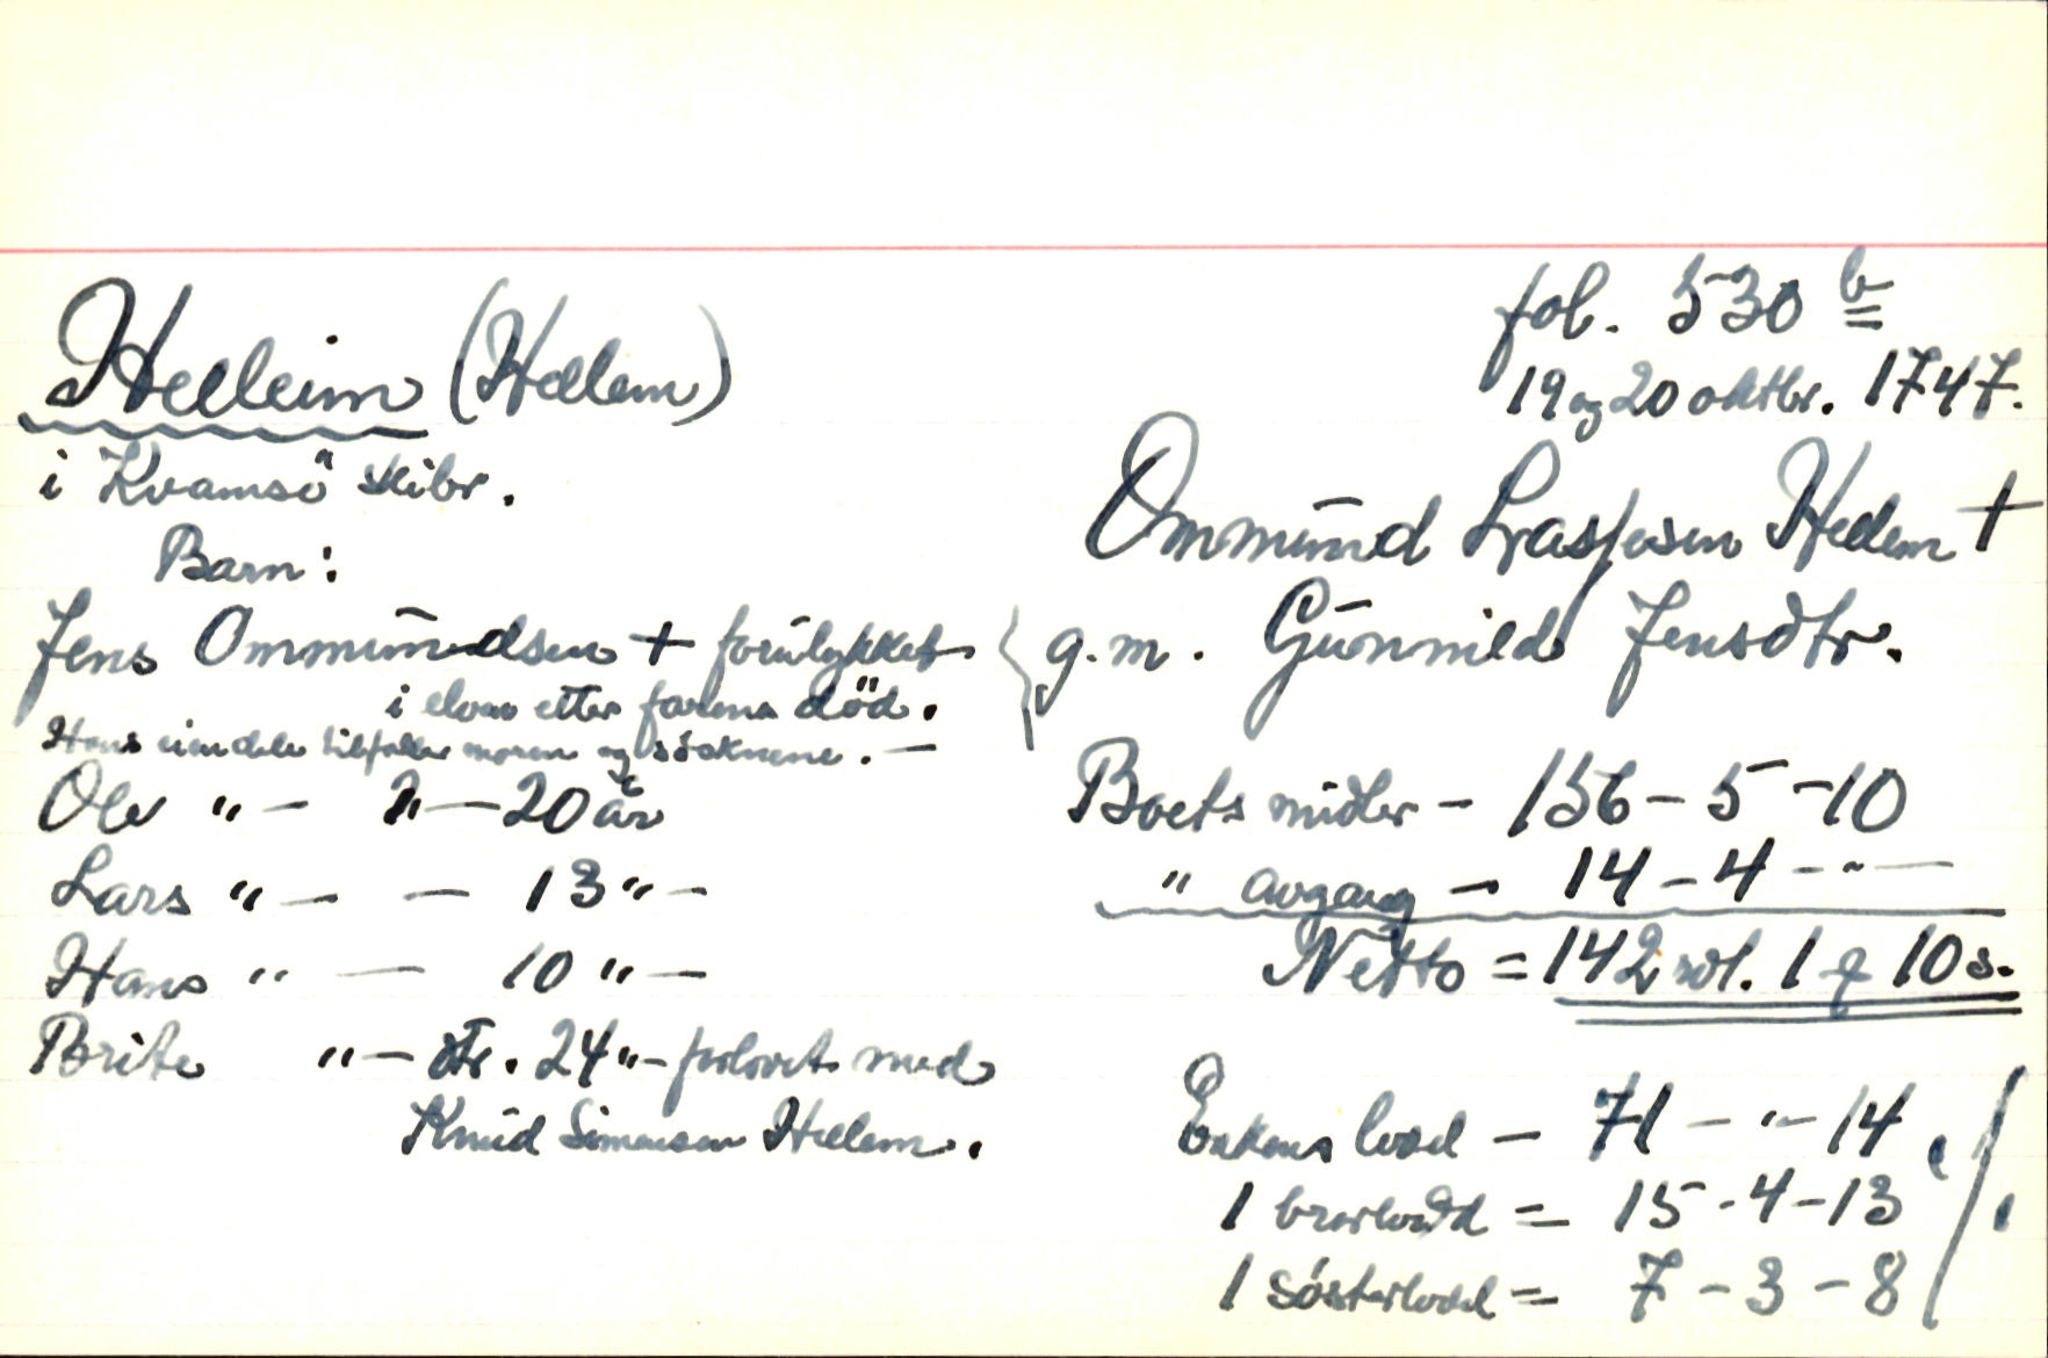 fol. 530 b
19 og 20 oktbr. 1747.
Helleim (Hellem)
i Kvamsö skibr.
Ommund Lassesen Hellem +
g.m. Gunnild Jensdtr.
Barn:
Jens Ommundsen + forulykket
i elven etter farens död.
Hans eiendeler tilfaller moren og sösknene. —
Ole " — " — 20 år
Lars " — — 13 " —
Hans " — 10 " —
Brite " — dtr. 24 " — forlovet med
Knud Simensen Hellem.
Boets midler — 156 — 5 — 10
" avgang — 14 — 4 — " —
Netto = 142 rdl. 1 ʠ 10 s.
Enkens lodd — 71 — " — 14
1 brorlodd = 15 - 4 - 13
1 sósterlodd = 7 - 3 - 8